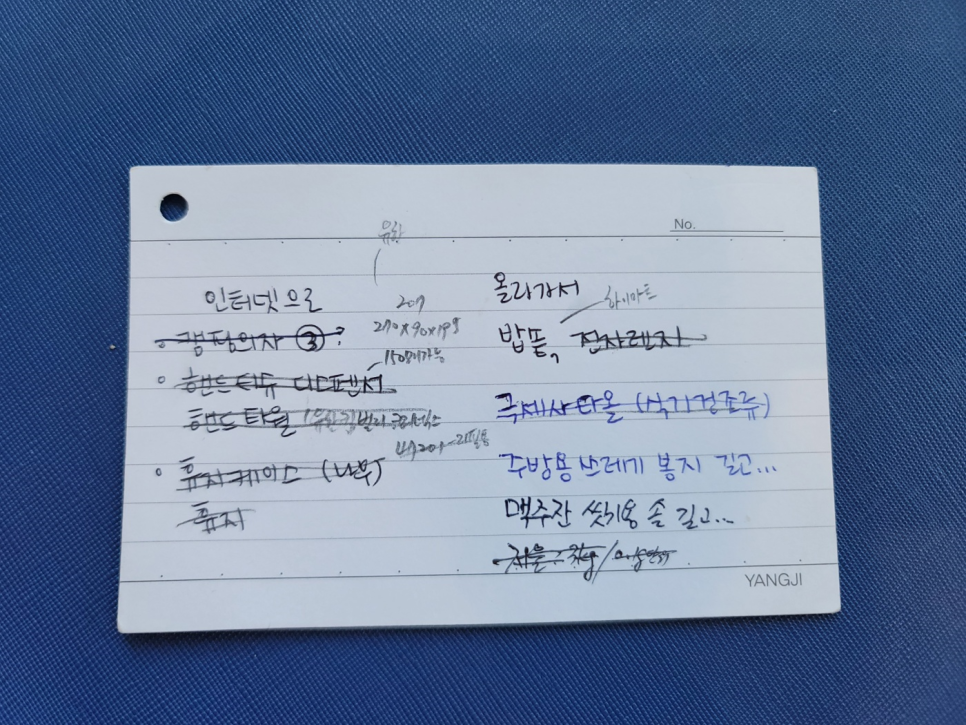 No.
유한
인터넷으로
캠핑의자 ③?
207
270x90x195
핸드타올 디스펜서
150매가능
핸드타월
휴지케이스 (나무)
휴지
올라가서
하이마트
밥솥, 전자렌지
극세사타올 (식기건조류)
주방용 쓰레기 봉지 길고...
맥주잔 씻기용 솔 길고...
거울:
YANGJI